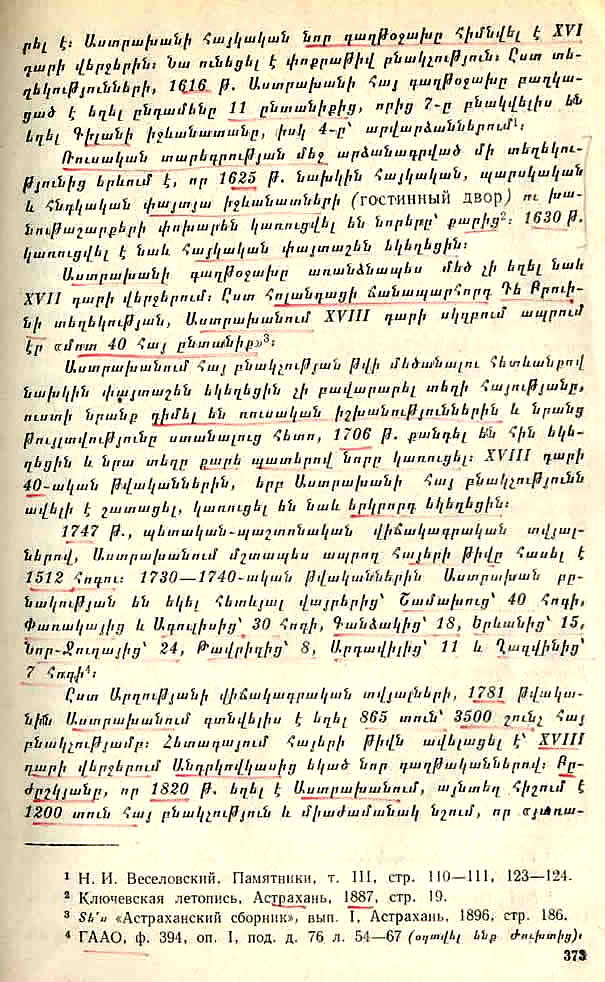 րել է։ Աստրախանի հայկական նոր գաղթօջախը հիմնվել է XVI
դարի վերջերին։ Նա ունեցել է փոքրաթիվ բնակչություն։ Ըստ տե-
ղեկությունների, 1616 թ. Աստրախանի հայ գաղթօջախը բաղկա-
ցած է եղել ընդամենը 11 ընտանիքից, որից 7-ը բնակվելիս են
եղել Գիլանի իջևանատանը, իսկ 4-ը՝ արվարձաններում¹։
Ռուսական տարեգրության մեջ արձանագրված մի տեղեկու-
թյունից երևում է, որ 1625 թ. նախկին հայկական, պարսկական
և հնդկական փայտյա իջևանատների (гостинный двор) ու խա-
նութաշարքերի փոխարեն կառուցվել են նորերը՝ քարից²։ 1630 թ.
կառուցվել է նաև հայկական փայտաշեն եկեղեցին։
Աստրախանի գաղթօջախը առանձնապես մեծ չի եղել նաև
XVII դարի վերջերում։ Ըստ հոլանդացի ճանապարհորդ Դե Բրուի-
նի տեղեկության, Աստրախանում XVIII դարի սկզբում ապրում
էր «մոտ 40 հայ ընտանիք»³։
Աստրախանում հայ բնակչության թվի մեծանալու հետևանքով
նախկին փայտաշեն եկեղեցին չի բավարարել տեղի հայությանը,
ուստի նրանք դիմել են ռուսական իշխանություններին և նրանց
թույլտվությունը ստանալուց հետո, 1706 թ. քանդել են հին եկե-
ղեցին և նրա տեղը քարե պատերով նորը կառուցել։ XVIII դարի
40-ական թվականներին, երբ Աստրախանի հայ բնակչությունն
ավելի է շատացել, կառուցել են նաև երկրորդ եկեղեցին։
1747 թ., պետական-պաշտոնական վիճակագրական տվյալ-
ներով, Աստրախանում մշտապես ապրող հայերի թիվը հասել է
1512 հոգու։ 1730—1740-ական թվականներին Աստրախան բը-
նակության են եկել հետևյալ վայրերից՝ Շամախուց՝ 40 հոգի,
Փառակայից և Ագուլիսից՝ 30 հոգի, Գանձակից՝ 18, Երևանից՝ 15,
Նոր-Ջուղայից՝ 24, Թավրիզից՝ 8, Արդավիլից՝ 11 և Ղազվինից՝
7 հոգի⁴։
Ըստ Արղությանի վիճակագրական տվյալների, 1781 թվակա-
նին Աստրախանում գտնվելիս է եղել 865 տուն՝ 3500 շունչ հայ
բնակչությամբ։ Հետագայում հայերի թիվն ավելացել է՝ XVIII
դարի վերջերում Անդրկովկասից եկած նոր գաղթականներով։ Բը-
ժըշկյանը, որ 1820 թ. եղել է Աստրախանում, այնտեղ հիշում է
1200 տուն հայ բնակչություն և միաժամանակ նշում, որ «յառա-
¹ Н. И. Веселовский, Памятники, т. III, стр. 110—111, 123—124.
² Ключевская летопись, Астрахань, 1887, стр. 19.
³ Տե՛ս «Астраханский сборник», вып. I, Астрахань, 1896, стр. 186.
⁴ ГААО, ф. 394, оп. I, под. д. 76 л. 54—67 (օգտվել ենք Ժուխտից)։
373